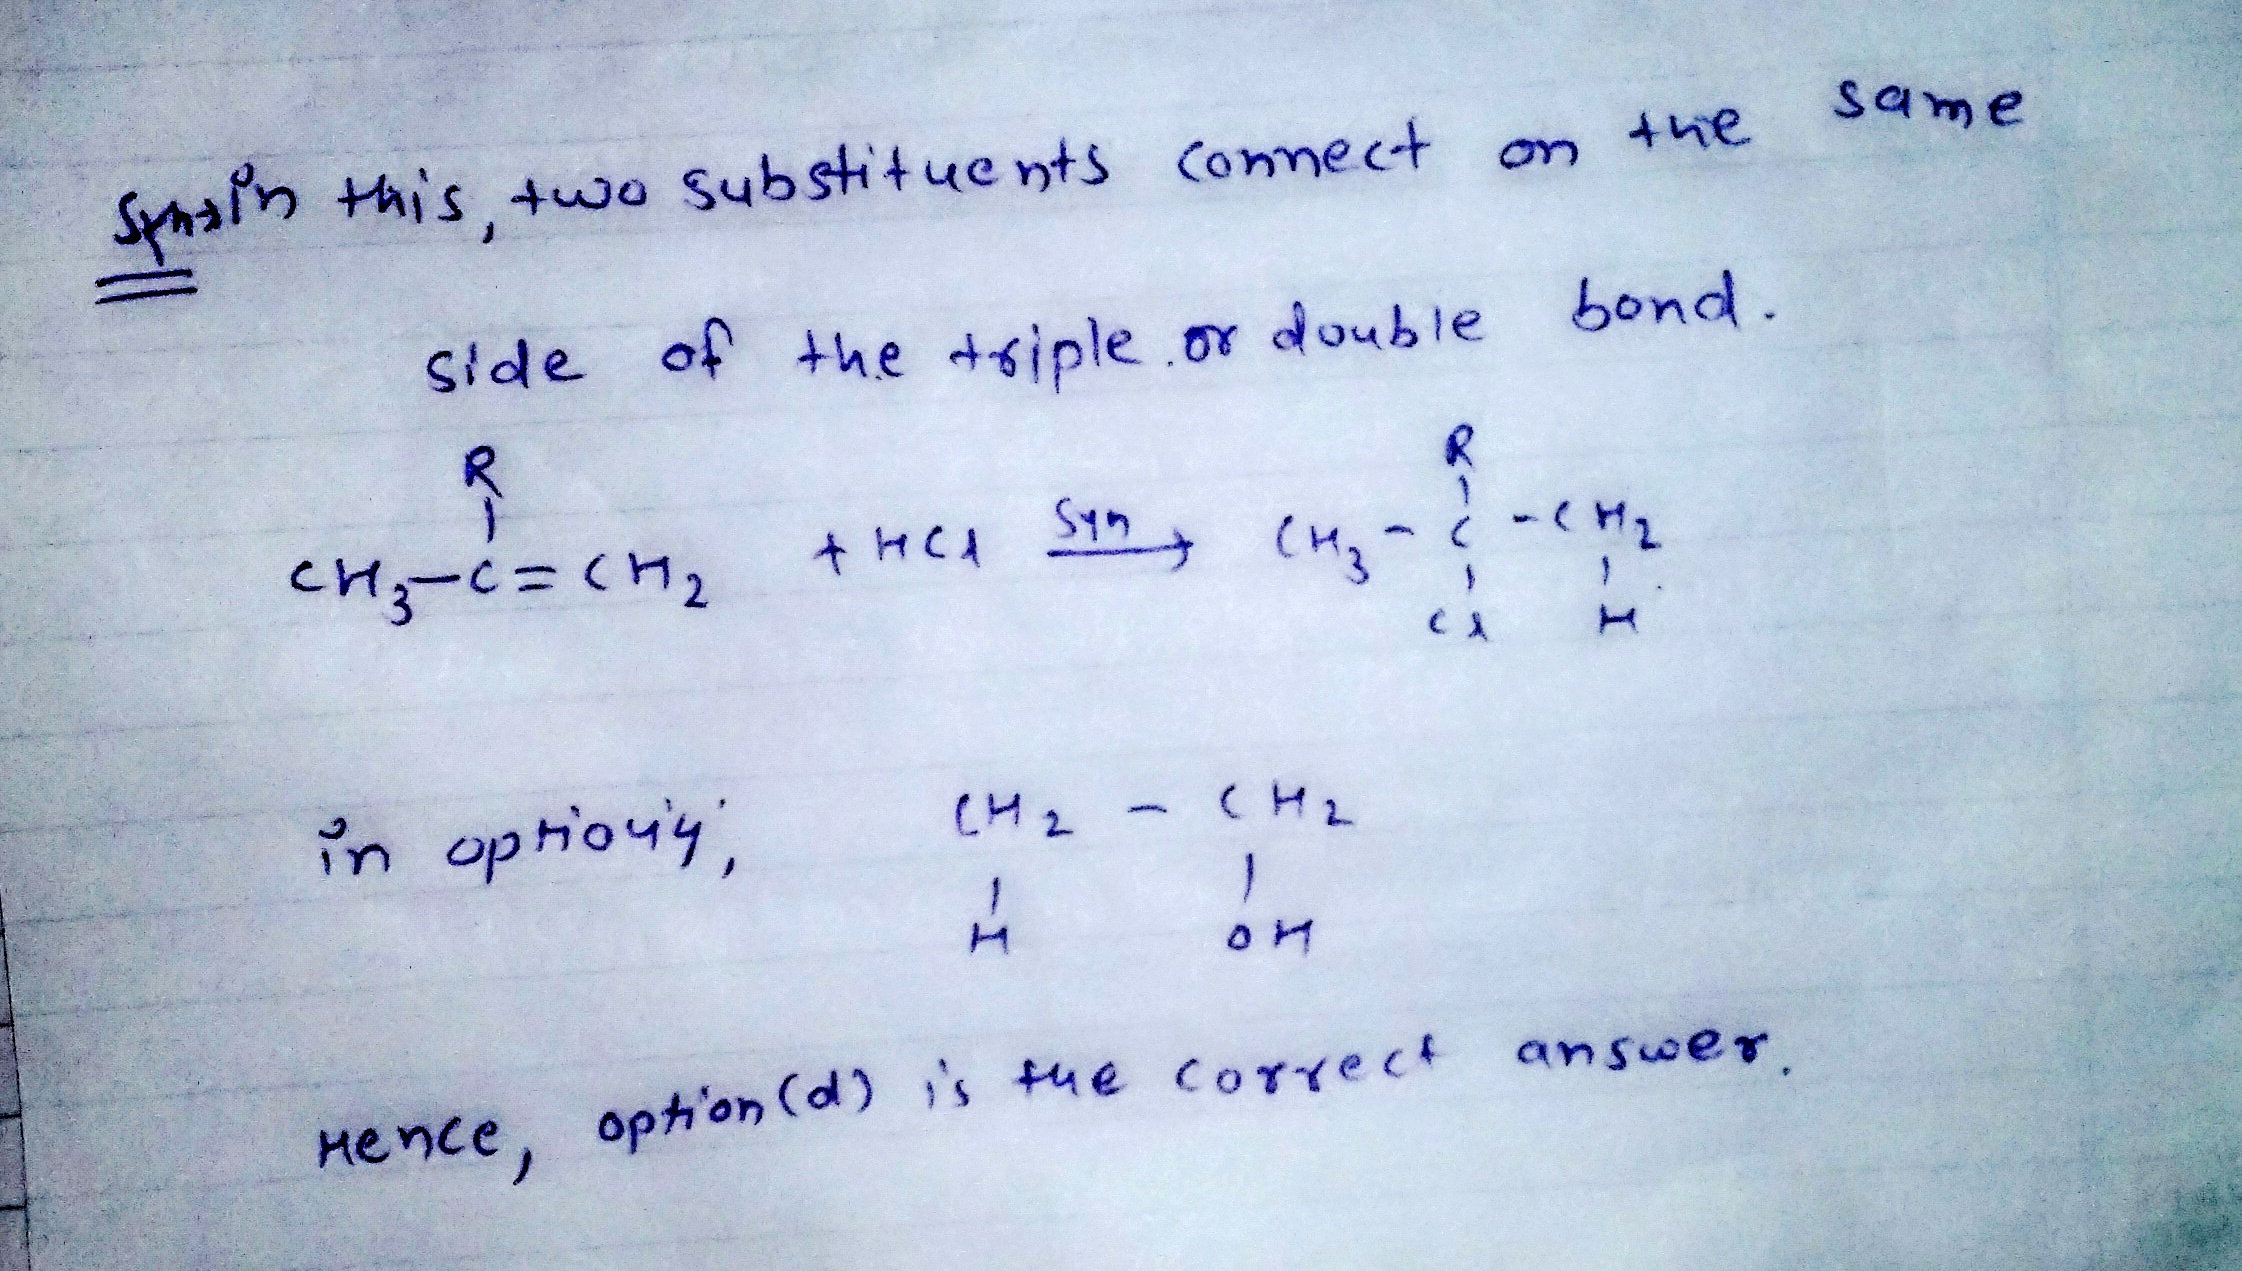 Syn→ in this, two substituents connect on the same
side of the triple or double bond.
R R
CH3—C=CH2 + HCl Syn→ CH3-C-CH2
Cl H
in CH2 - CH2
H OH
Hence, option (d) is the correct answer.